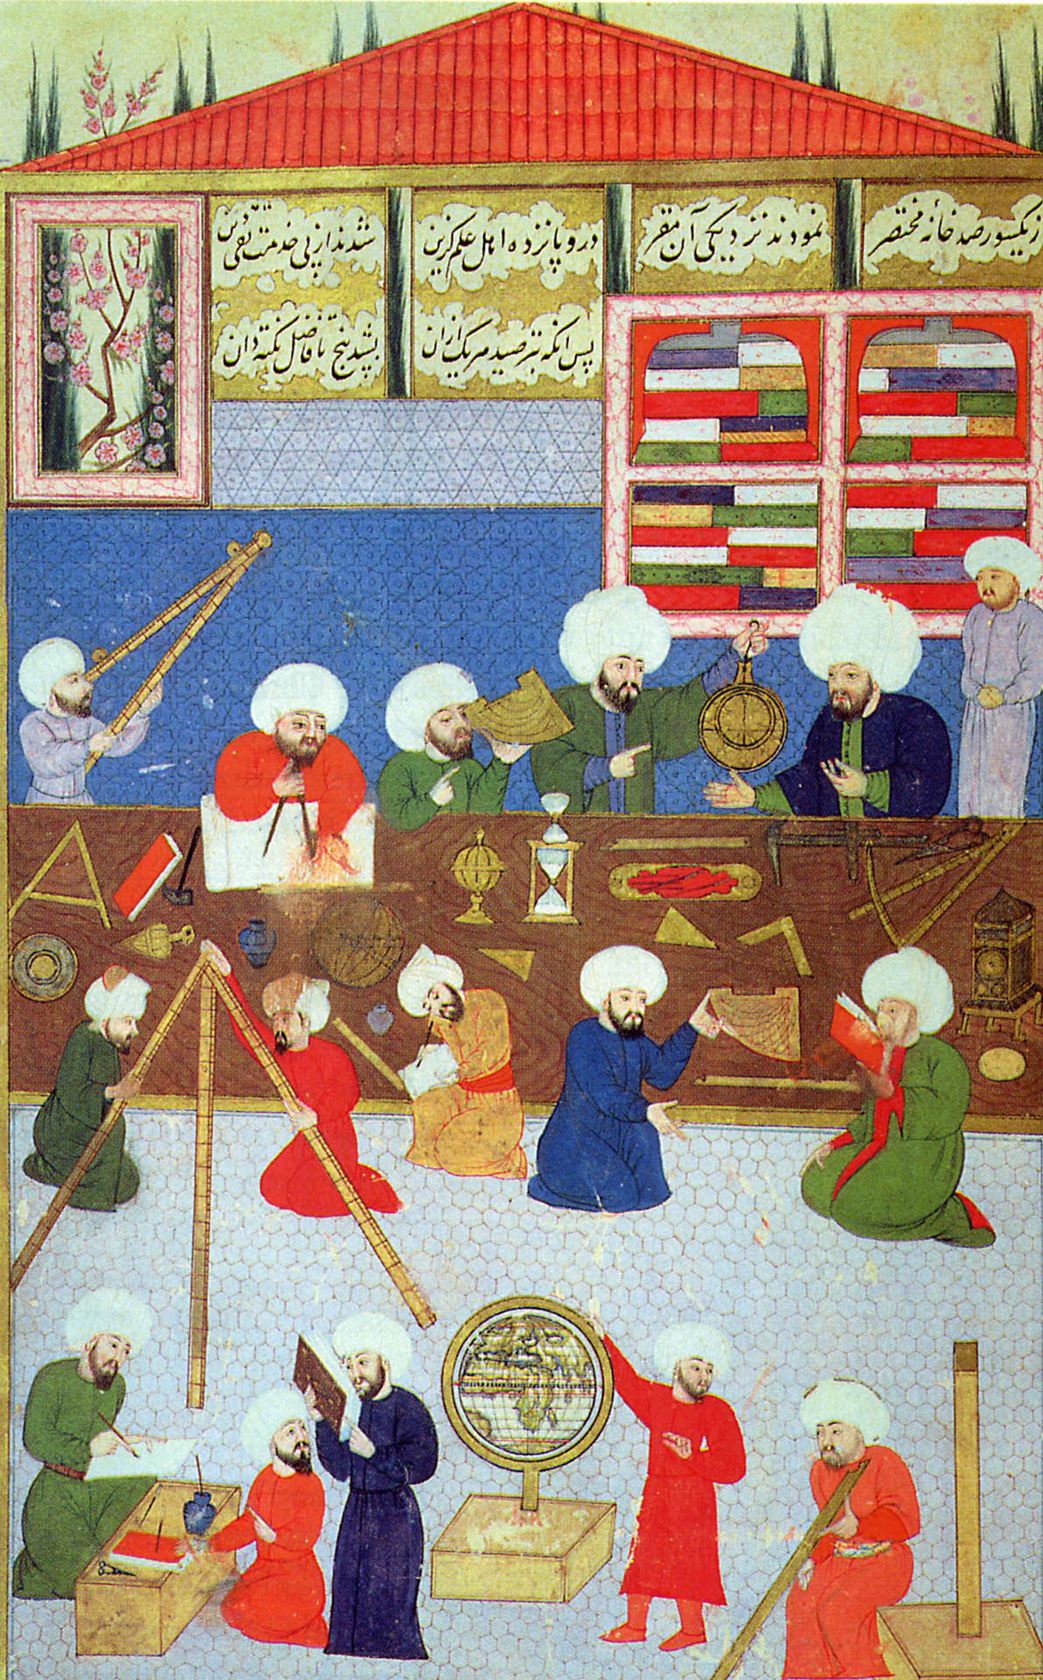 زیکسور صد خانهٔ مختصر
نمودند نزدیکی آن مقر
درو پانزده اهل علم گزین
شدند از پی خدمت
پس آنکه بهر صید هر یک ازان
پنج تا فاضل نکته دان